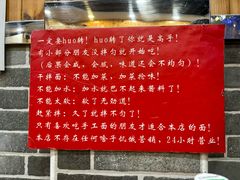 一定要huo转！huo转了你就是高手！
有小部分朋友没拌匀就开始吃！
（后果会咸，会腻，味道还会不均匀）！
干拌面：不能加菜，加菜吟味！
不能加水：加水就巴不起来酱料了！
不能太软：软了无劲道！
赶紧拌：久了就拌不匀了！
只有喜欢吃手工面的朋友才适合本店的面！
本店不存在任何啥子饥饿营销，24小时营业！